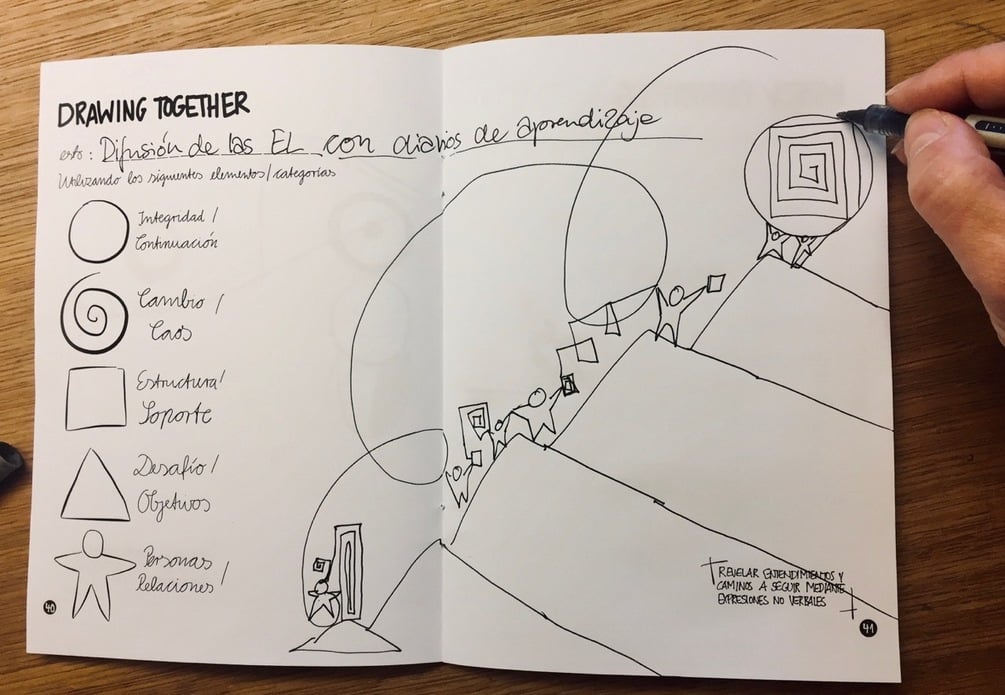 DRAWING TOGETHER
esto: Difusión de las EL con diarios de aprendizaje
Utilizando los siguientes elementos/categorías
Integridad /
Continuación
Cambio /
Caos
Estructura/
Soporte
Desafío /
Objetivos
Personas /
Relaciones
40
REVELAR ENTENDIMIENTOS Y
CAMINOS A SEGUIR MEDIANTE
EXPRESIONES NO VERBALES
41